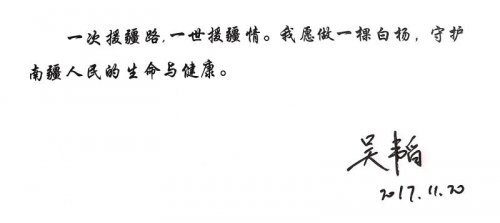 一次援疆路,一世援疆情。我愿做一棵白杨，守护
南疆人民的生命与健康。
吴韬
2017.11.20